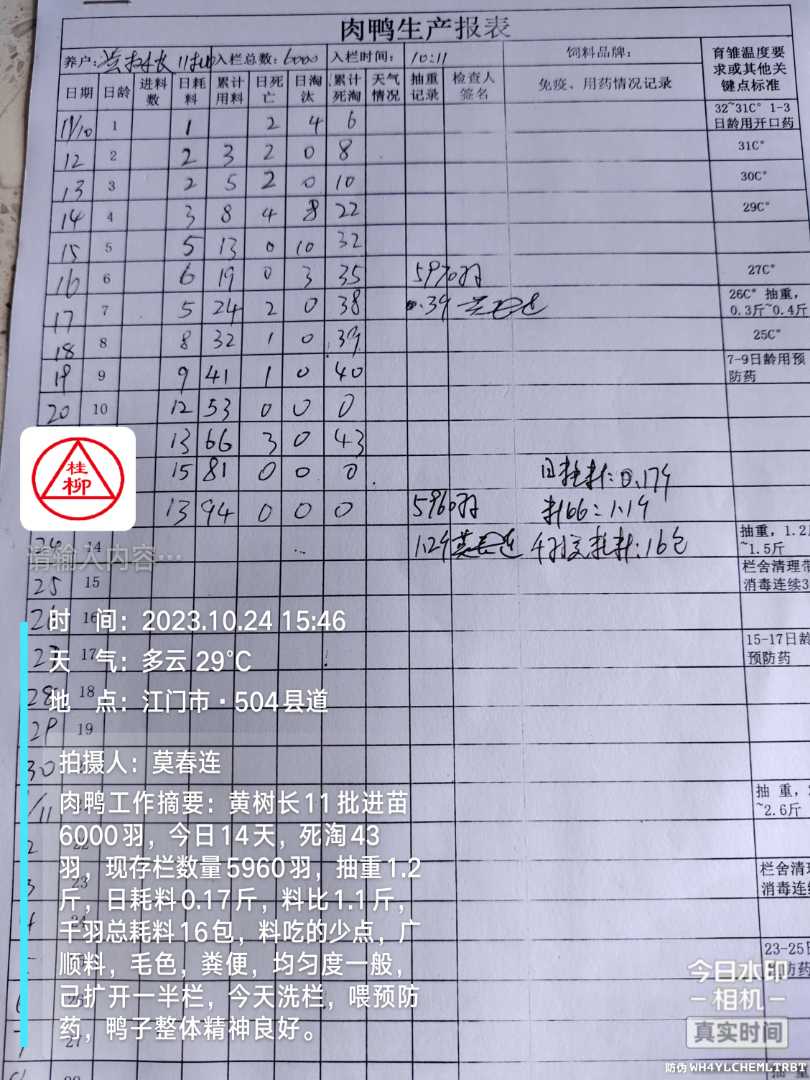 肉鸭生产报表
养户: 黄树长 11批 入栏总数: 6000 入栏时间: 10.11 饲料品牌: 育雏温度要求或其他关键点标准
日期 日龄 进料数 日耗料 累计用料 日死亡 日淘汰 累计死淘 天气情况 抽重记录 检查人签名 免疫、用药情况记录
11/10 1 1 2 4 6 32~31C° 1-3日龄用开口药
12 2 2 3 2 0 8 31C°
13 3 2 5 2 0 10 30C°
14 4 3 8 4 8 22 29C°
15 5 5 13 0 10 32
16 6 6 19 0 3 35 5970羽 27C°
17 7 5 24 2 0 38 0.39 莫春连 26C° 抽重, 0.3斤~0.4斤
18 8 8 32 1 0 39 25C°
19 9 9 41 1 0 40 7-9日龄用预防药
20 10 12 53 0 0 0
13 66 3 0 43
15 81 0 0 0 日耗料: 0.179
13 94 0 0 0 5960羽 料比: 1.19
24 14 1.29 莫春连 千羽总耗料: 16包 抽重, 1.2 ~1.5斤
请输入内容…
25 15 栏舍清理带 消毒连续3
26 16
27 17 15-17日龄 预防药
28 18
29 19
30
1/11 抽重, ~2.6斤
2 22
3 23 栏舍清 消毒连续
4 24
23-25日 防药
6
7 27
桂柳
时 间: 2023.10.24 15:46
天 气: 多云 29℃
地 点: 江门市·504县道
拍摄人: 莫春连
肉鸭工作摘要: 黄树长11批进苗
6000羽, 今日14天, 死淘43
羽, 现存栏数量5960羽, 抽重1.2
斤, 日耗料0.17斤, 料比1.1斤,
千羽总耗料16包, 料吃的少点, 广
顺料, 毛色, 粪便, 均匀度一般,
己扩开一半栏, 今天洗栏, 喂预防
药, 鸭子整体精神良好。
今日水印
相机
真实时间
防伪 WH4YLCHEMLTRBT